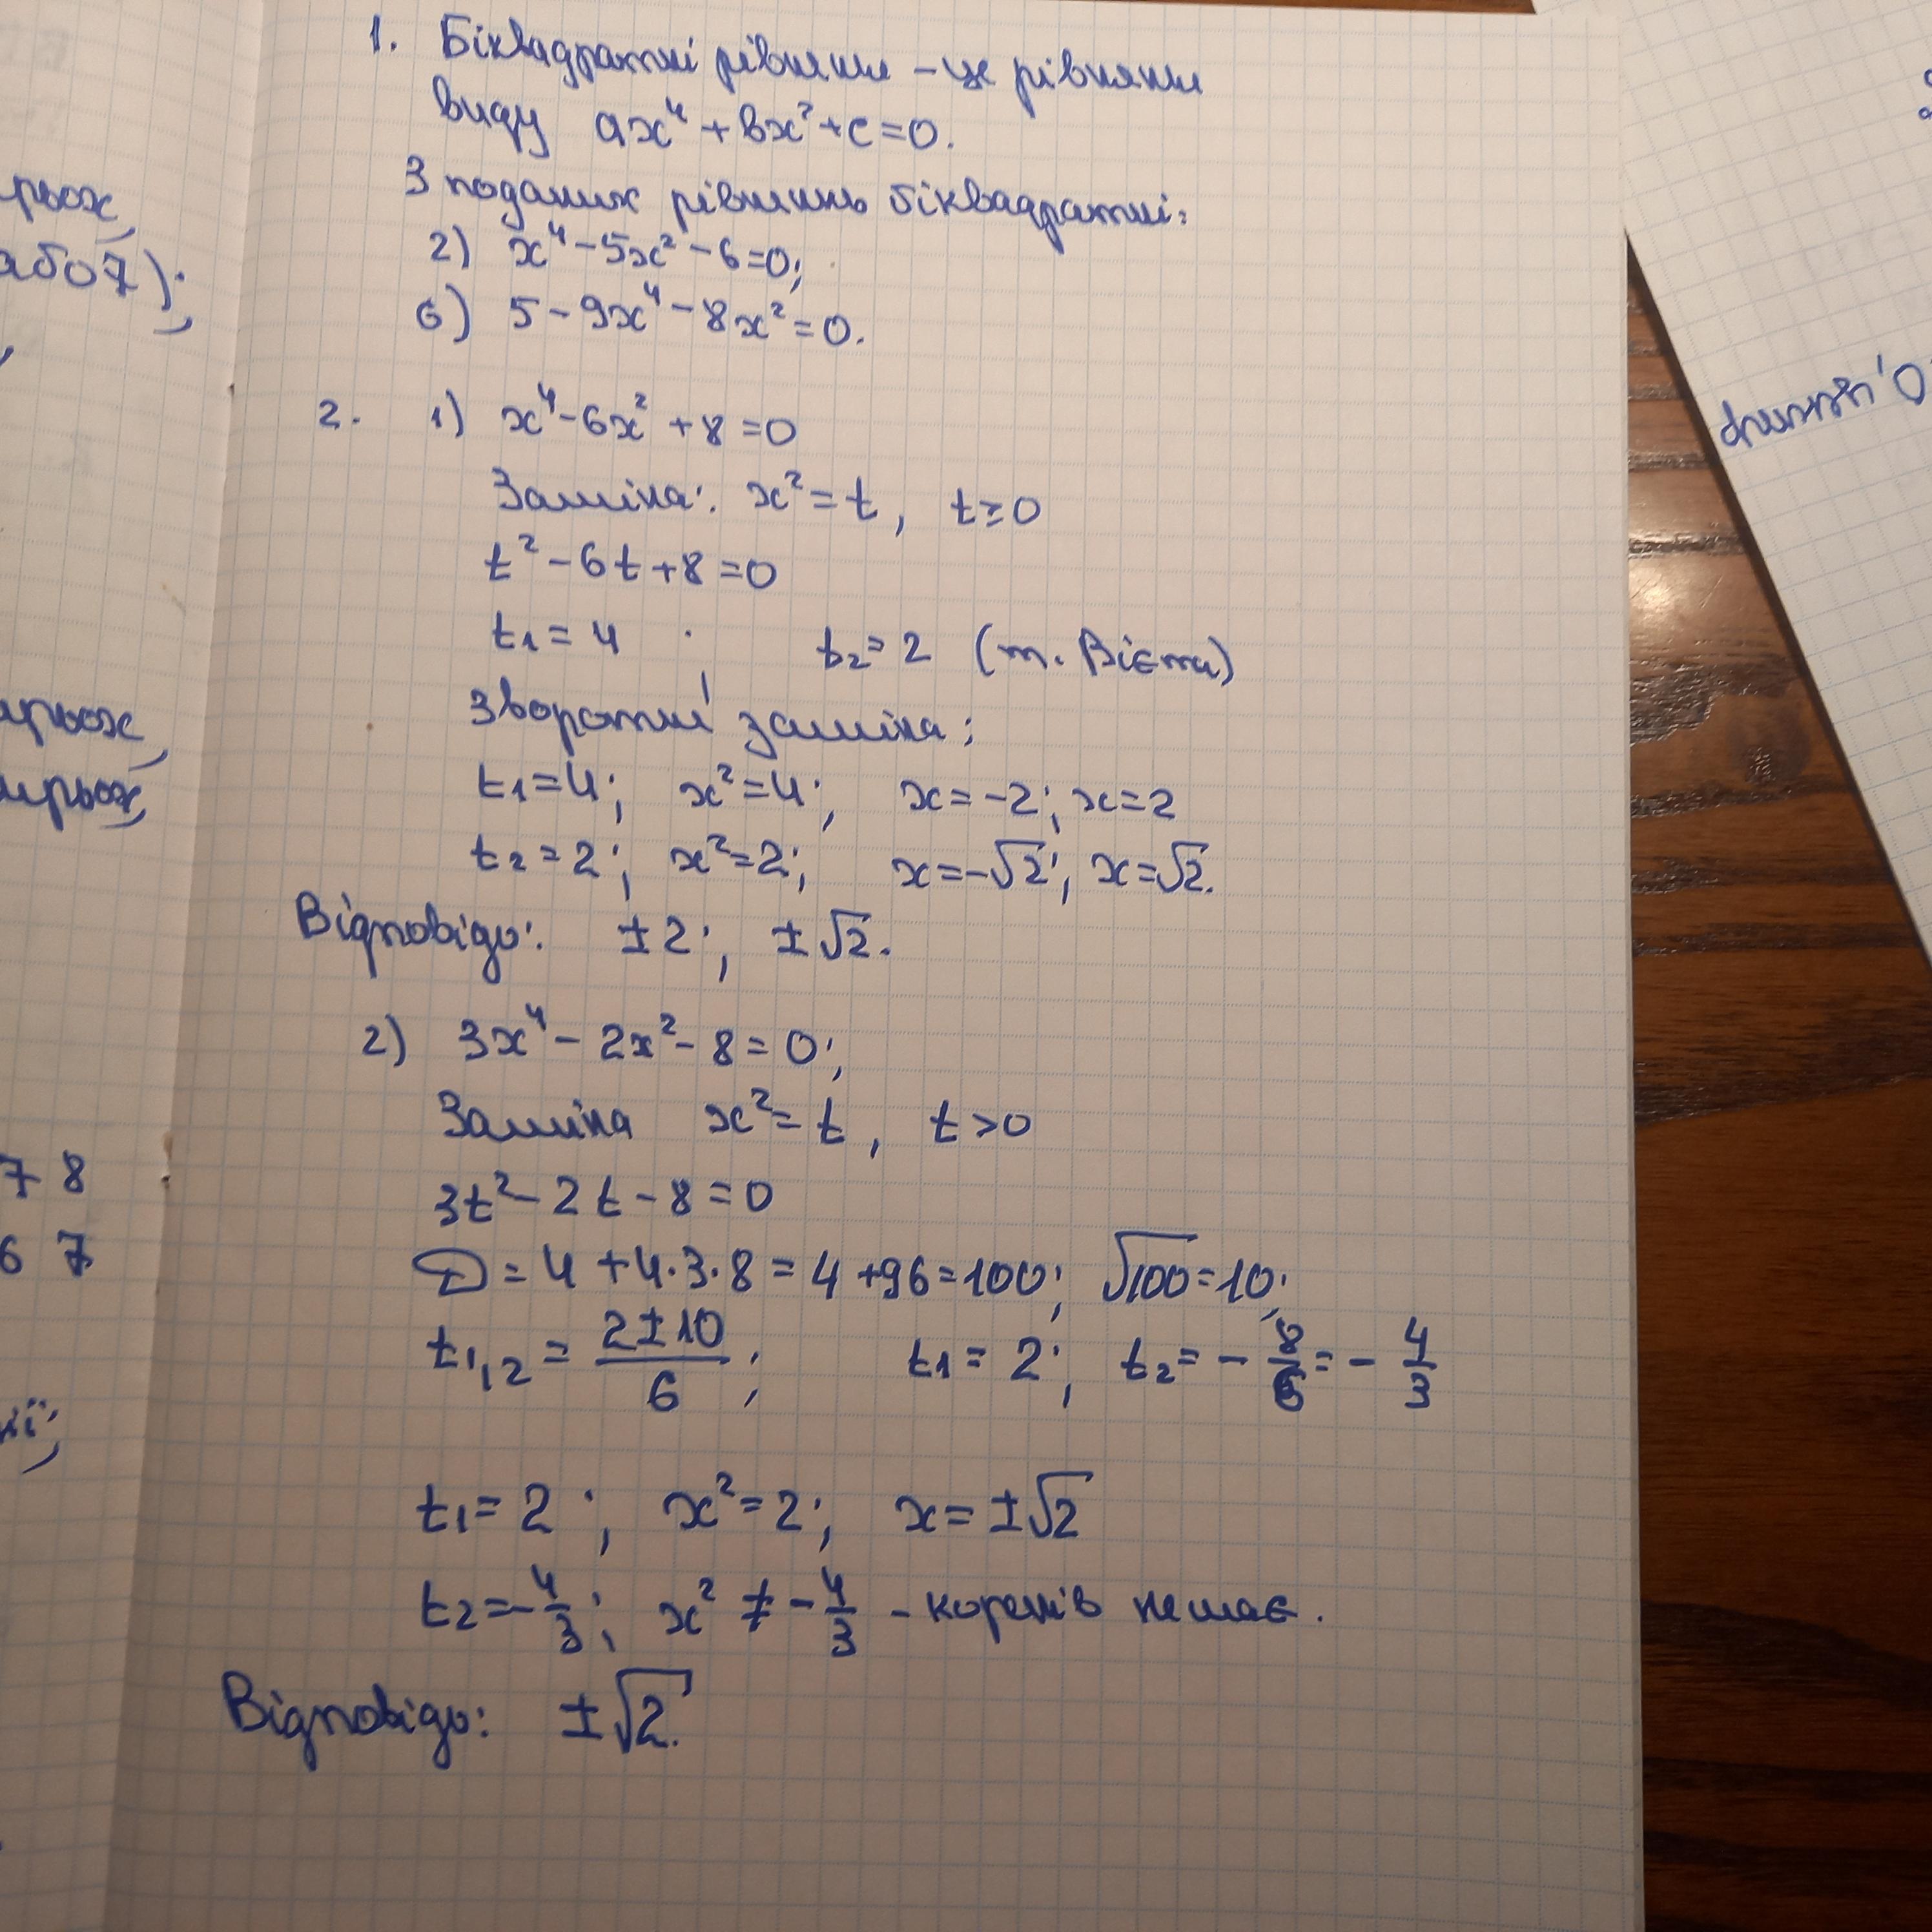 1. Біквадратні рівняння – це рівняння
виду ax⁴ + bx² + c = 0.
З поданих рівнянь біквадратні:
2) x⁴ – 5x² – 6 = 0;
6) 5 – 9x⁴ – 8x² = 0.
2. 1) x⁴ – 6x² + 8 = 0
Заміна: x² = t, t ≥ 0
t² – 6t + 8 = 0
t₁ = 4 ; t₂ = 2 (т. Вієта)
Зворотні заміна:
t₁ = 4; x² = 4; x = –2; x = 2
t₂ = 2; x² = 2; x = –√2; x = √2.
Відповідь: ±2; ±√2.
2) 3x⁴ – 2x² – 8 = 0;
Заміна x² = t, t > 0
3t² – 2t – 8 = 0
D = 4 + 4·3·8 = 4 + 96 = 100; √100 = 10;
t₁,₂ = (2 ± 10)/6; t₁ = 2; t₂ = – 8/6 = – 4/3
t₁ = 2; x² = 2; x = ±√2
t₂ = – 4/3; x² ≠ – 4/3 – коренів немає.
Відповідь: ±√2.
рьох,
або 7);
рьох,
рьох,
7 8
6 7